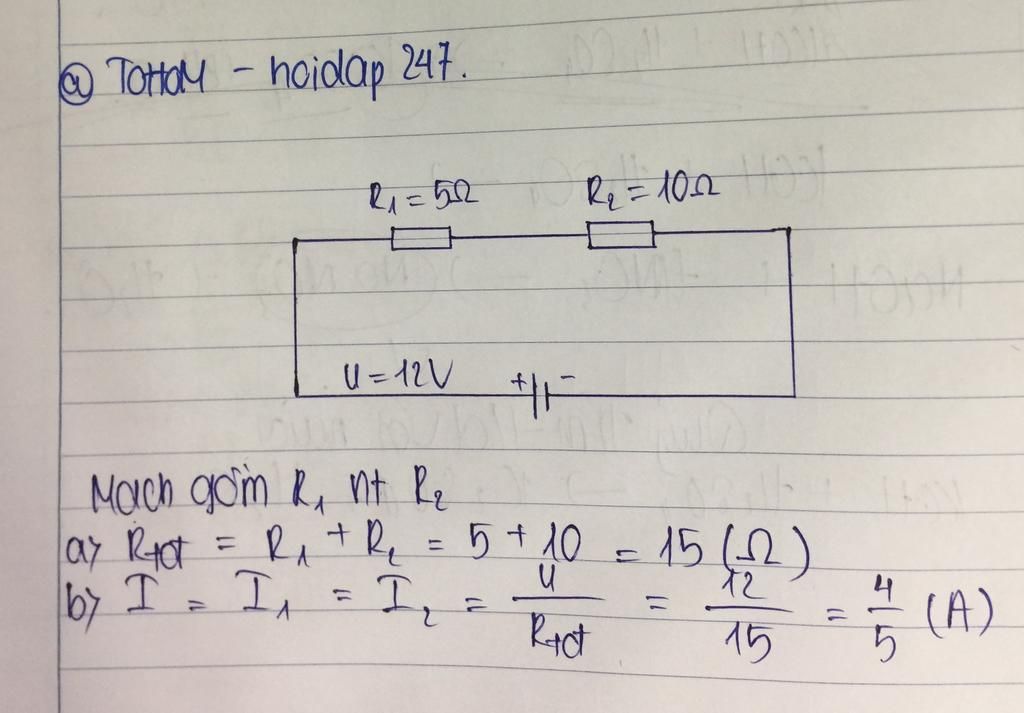 @ TOHAM - hoidap 247.
R₁ = 5Ω R₂ = 10Ω
U = 12V + -
Mạch gồm R₁ nt R₂
a) Rtđ = R₁ + R₂ = 5 + 10 = 15 (Ω)
b) I = I₁ = I₂ = U/Rtđ = 12/15 = 4/5 (A)